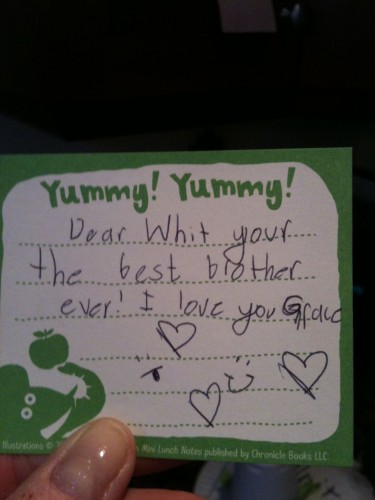 Yummy! Yummy!
Dear Whit your
the best brother
ever! I love you Grace
Illustrations ©
Mini Lunch Notes published by Chronicle Books LLC.